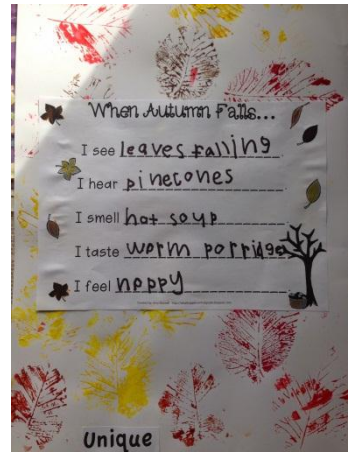 When Autumn Falls...
I see leaves falling
I hear pinecones
I smell hot soup
I taste worm porridge
I feel hoppy
Unique